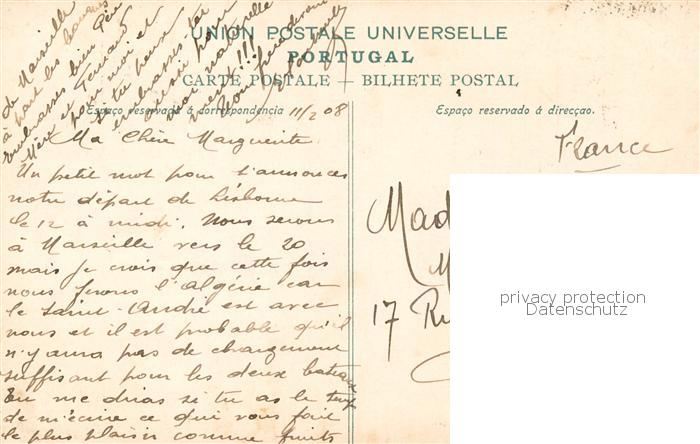 UNION POSTALE UNIVERSELLE
PORTUGAL
CARTE POSTALE — BILHETE POSTAL
Espaço reservado á correspondencia 11/2 08
Espaço reservado á direcçao.
Ma Chère Marguerite
Un petit mot pour t'annoncer
notre départ de Lisbonne
le 12 à midi. Nous serons
à Marseille vers le 20
mais je crois que cette fois
nous ferons l'Algérie car
le Saint-André est avec
nous et il est probable qu'il
n'y aura pas de chargement
suffisant pour les deux bateaux
Tu me diras si tu as le temps
de m'écrire ce qui vous fait
le plus plaisir comme fruits
de Marseille
à part les
embrasses bien Père
Mère et Fernand
pour moi et
si tu peux
embrasses la
aussi pour
moi
!!!
France
Mad
M
17 Ru
privacy protection
Datenschutz